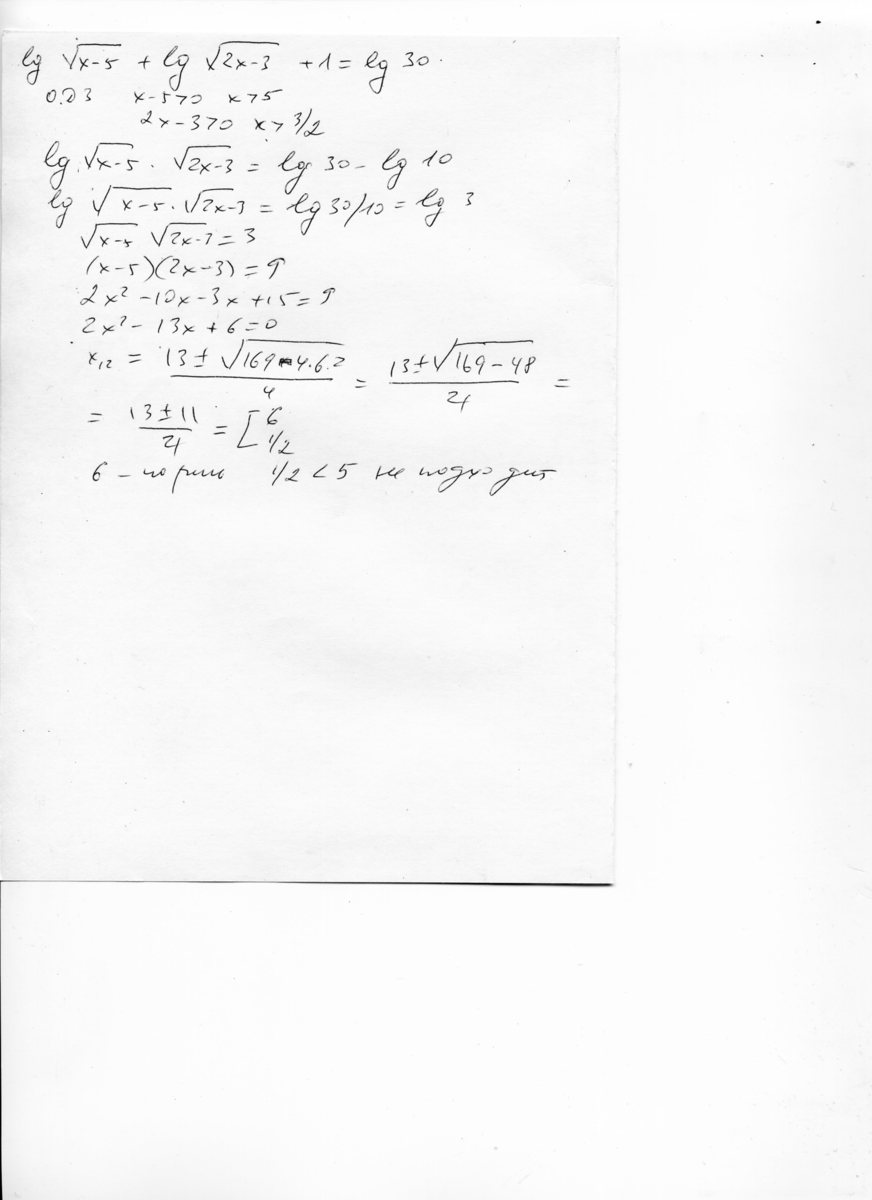 lg √x-5 + lg √2x-3 + 1 = lg 30.
ОДЗ x-5>0 x>5
2x-3>0 x>3/2
lg √x-5 · √2x-3 = lg 30 - lg 10
lg √x-5 · √2x-3 = lg 30/10 = lg 3
√x-5 √2x-3 = 3
(x-5)(2x-3) = 9
2x² -10x-3x+15 = 9
2x² - 13x + 6 = 0
x₁₂ = (13 ± √169-4·6·2)/4 = (13 ± √169-48)/4 =
= (13 ± 11)/4 = [6 1/2
6 - корень 1/2 < 5 не подходит